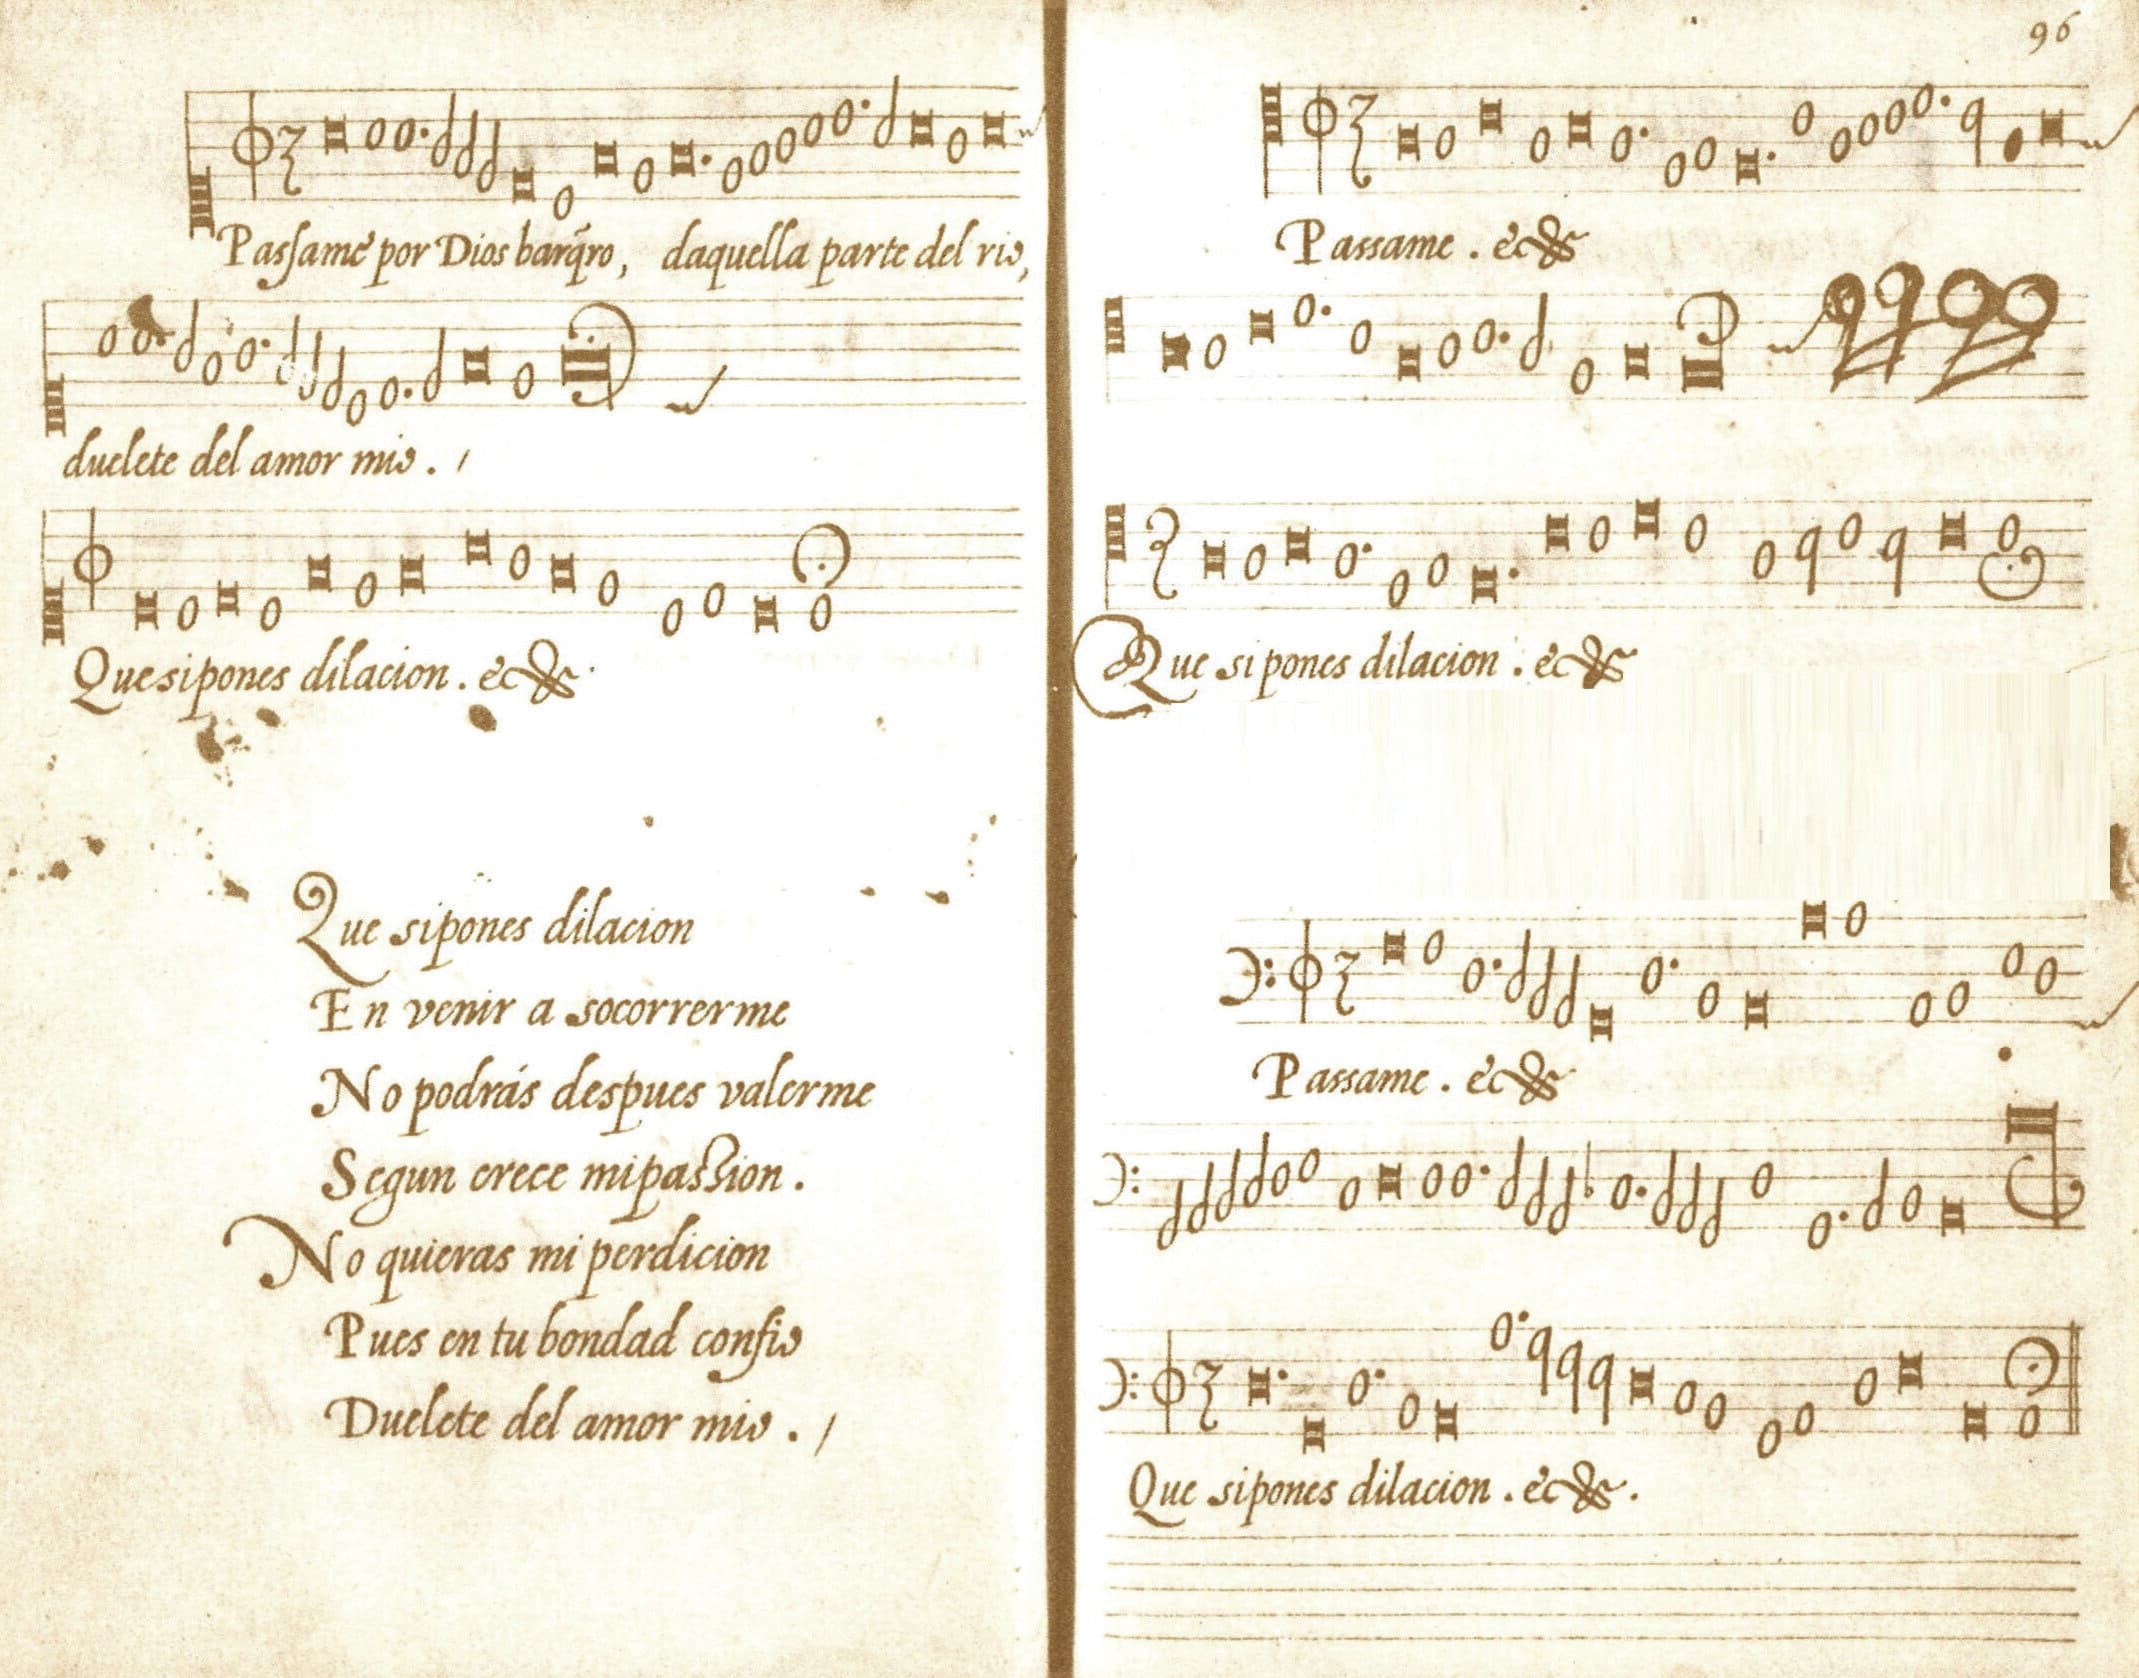 Passame por Dios barq̃ro, daquella parte del rio,
duelete del amor mio.
Que si pones dilacion. &c
Que si pones dilacion
En venir a socorrerme
No podrás despues valerme
Segun crece mi passion.
No quieras mi perdicion
Pues en tu bondad confio
Duelete del amor mio.
96
Passame. &c
Que si pones dilacion. &c
Passame. &c
Que si pones dilacion. &c.